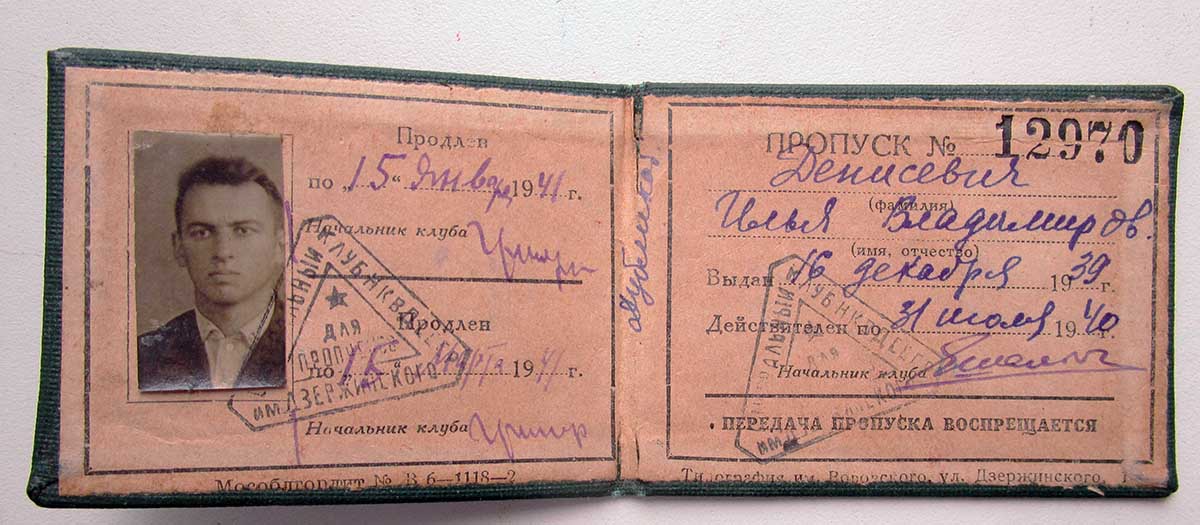 Продлен
по „15“ Января 1941 г.
Начальник клуба
Продлен
по „15“ Марта 1941 г.
Начальник клуба
КЛУБ НКВД СССР
ДЛЯ
ПРОПУСКОВ
ИМ. ДЗЕРЖИНСКОГО
Мособлгорлит № В 6—1118—2
дубликат
ПРОПУСК № 12970
Денисевич
(фамилия)
Илья Владимиров.
(имя, отчество)
Выдан 16 декабря 1939 г.
Действителен по 31 июля 1940 г.
Начальник клуба
ПЕРЕДАЧА ПРОПУСКА ВОСПРЕЩАЕТСЯ
Типография им. Воровского, ул. Дзержинского,